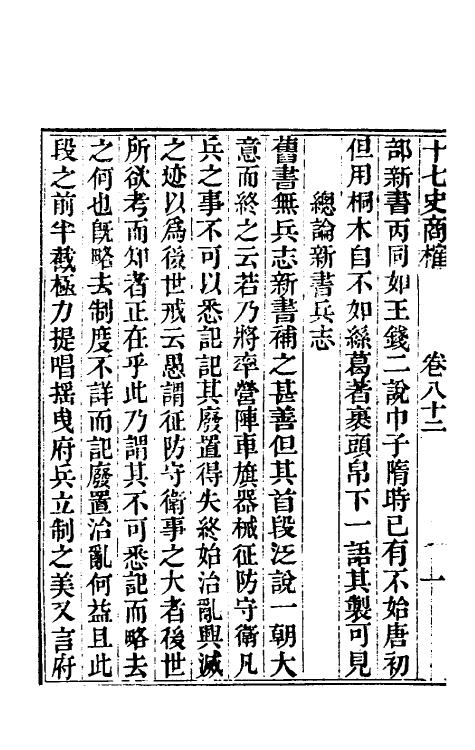 十七史商榷　卷八十二　一
部新書丙同如王錢二說巾子隋時已有不始唐初
但用桐木自不如絲葛著裹頭帛下一語其製可見
總論新書兵志
舊書無兵志新書補之甚善但其首段泛說一朝大
意而終之云若乃將卒營陣車旗器械征防守衛凡
兵之事不可以悉記記其廢置得失終始治亂興滅
之迹以爲後世戒云愚謂征防守衛事之大者後世
所欲考而知者正在乎此乃謂其不可悉記而略去
之何也旣略去制度不詳而記廢置治亂何益且此
段之前半截極力提唱搖曳府兵立制之美又言府